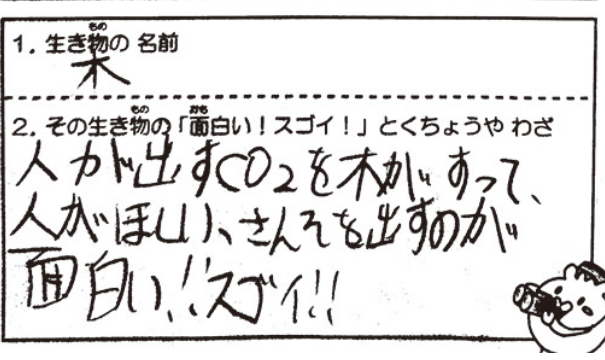 1. 生き物の 名前
木
2. その生き物の「面白い！スゴイ！」とくちょうや わざ
人が出すCO2を木がすって、
人がほしい、さんそを出すのが
面白い!!スゴイ!!